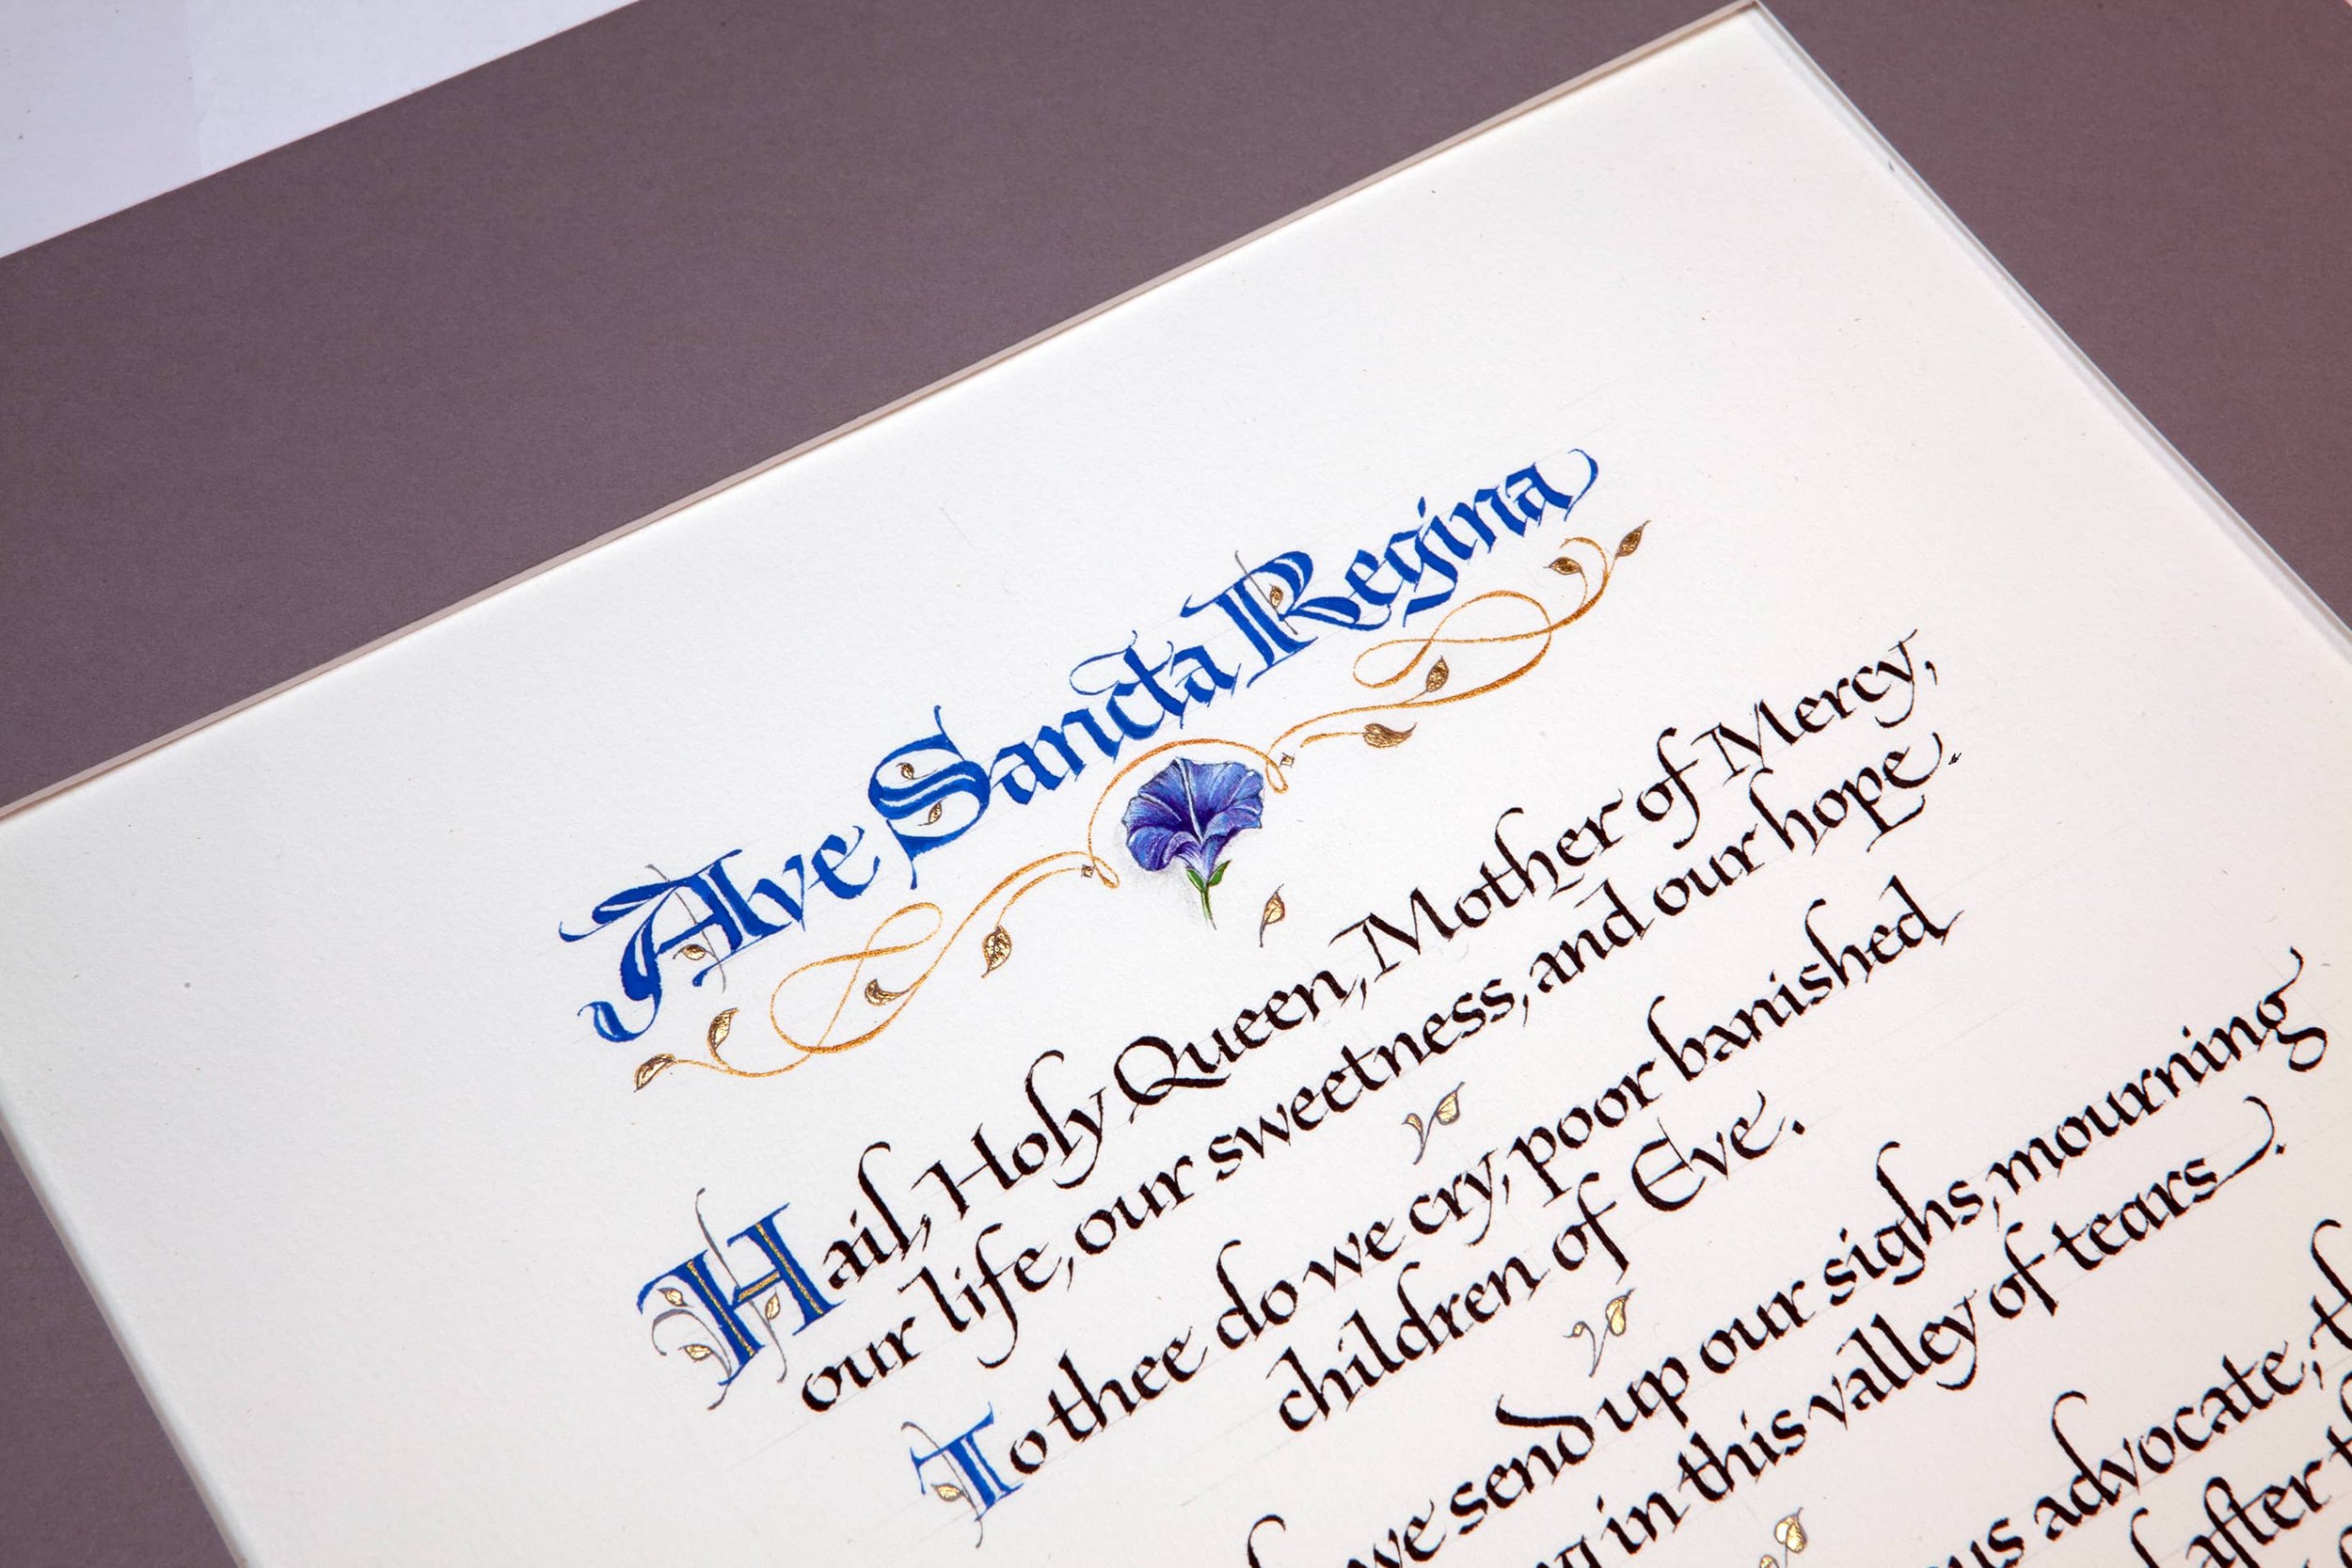 Alve Sancta Regina
Hail, Holy Queen, Mother of Mercy,
our life, our sweetness, and our hope.
To thee do we cry, poor banished
children of Eve.
we send up our sighs, mourning
in this valley of tears.
advocate,
after